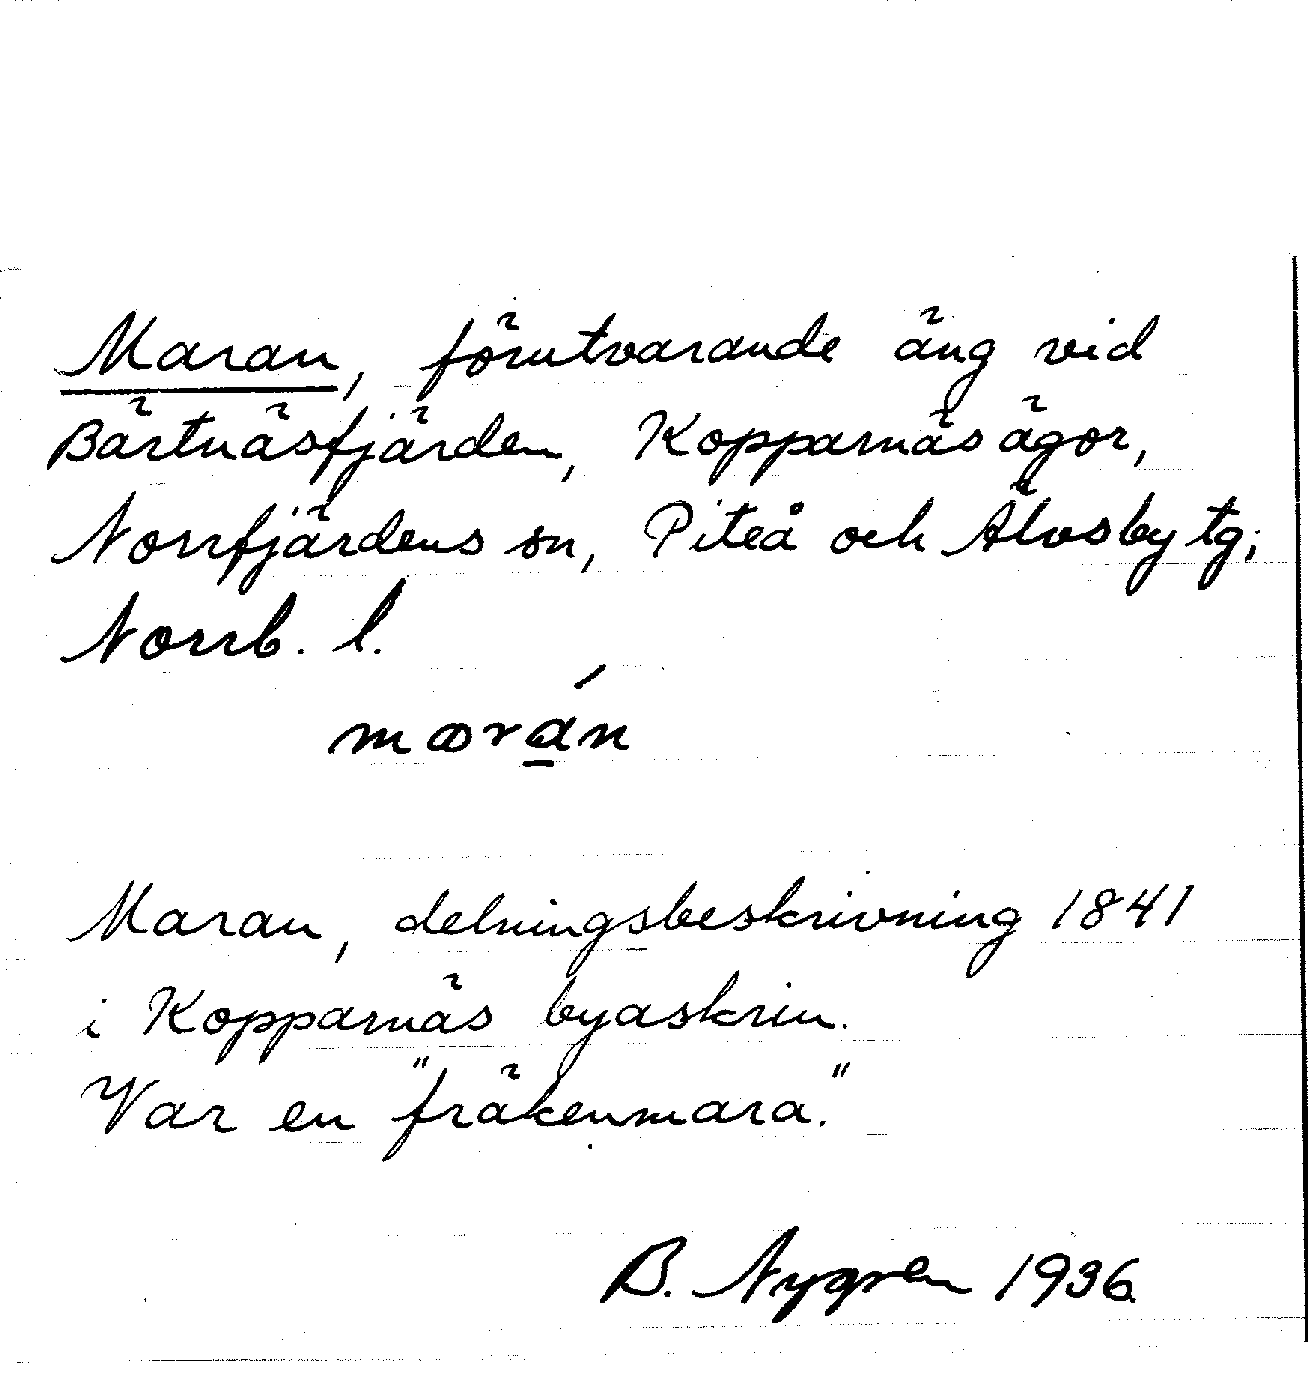 Maran, förutvarande äng vid
Bärtnäsfjärden, Kopparnäs ägor,
Norrfjärdens sn, Piteå och Älvsby tg;
Norrb. l.
mꝏrán
Maran, delningsbeskrivning 1841
i Kopparnäs byaskrin.
Var en "fräkenmara."
B. Nygren 1936.